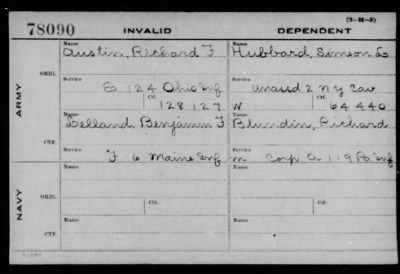 (3-21-5)
78090 INVALID DEPENDENT
Name Name
Austin, Richard F Hubbard, Simeon
ORIG.
Service Service
E 124 Ohio Inf Unassd 2 N Y Cav
Ctf. Ctf.
128 127 W 64 440
ARMY
Name Name
Lelland, Benjamin F Blundin, Richard
CTF.
Service Service
F 6 Maine Inf m Corp A 119 Pa Inf
Name Name
ORIG.
Service Service
Ctf. Ctf.
NAVY
Name Name
CTF.
Service Service